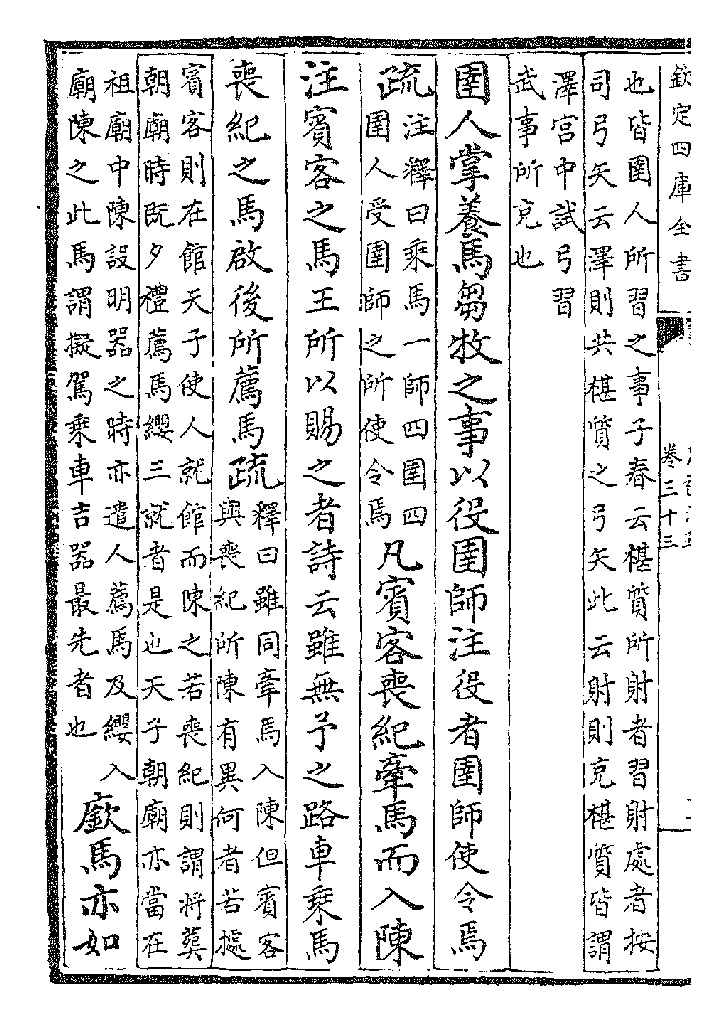 欽定四庫全書
卷三十三
也皆圉人所習之事子春云椹質所射者習射處者按
司弓矢云澤則共椹質之弓矢此云射則充椹質皆謂
澤宫中試弓習
武事所充也
圉人掌養馬芻牧之事以役圉師注役者圉師使令焉
疏注釋曰乘馬一師四圉四
圉人受圉師之所使令焉
凡賓客喪紀牽馬而入陳
注賓客之馬王所以賜之者詩云雖無予之路車乘馬
喪紀之馬啟後所薦馬疏
釋曰雖同牽馬入陳但賓客
與喪紀所陳有異何者若據
賓客則在館天子使人就館而陳之若喪紀則謂將葬
朝廟時既夕禮薦馬纓三就者是也天子朝廟亦當在
祖廟中陳設明器之時亦遣人薦馬及纓入
廟陳之此馬謂擬駕乘車吉器最先者也
廞馬亦如